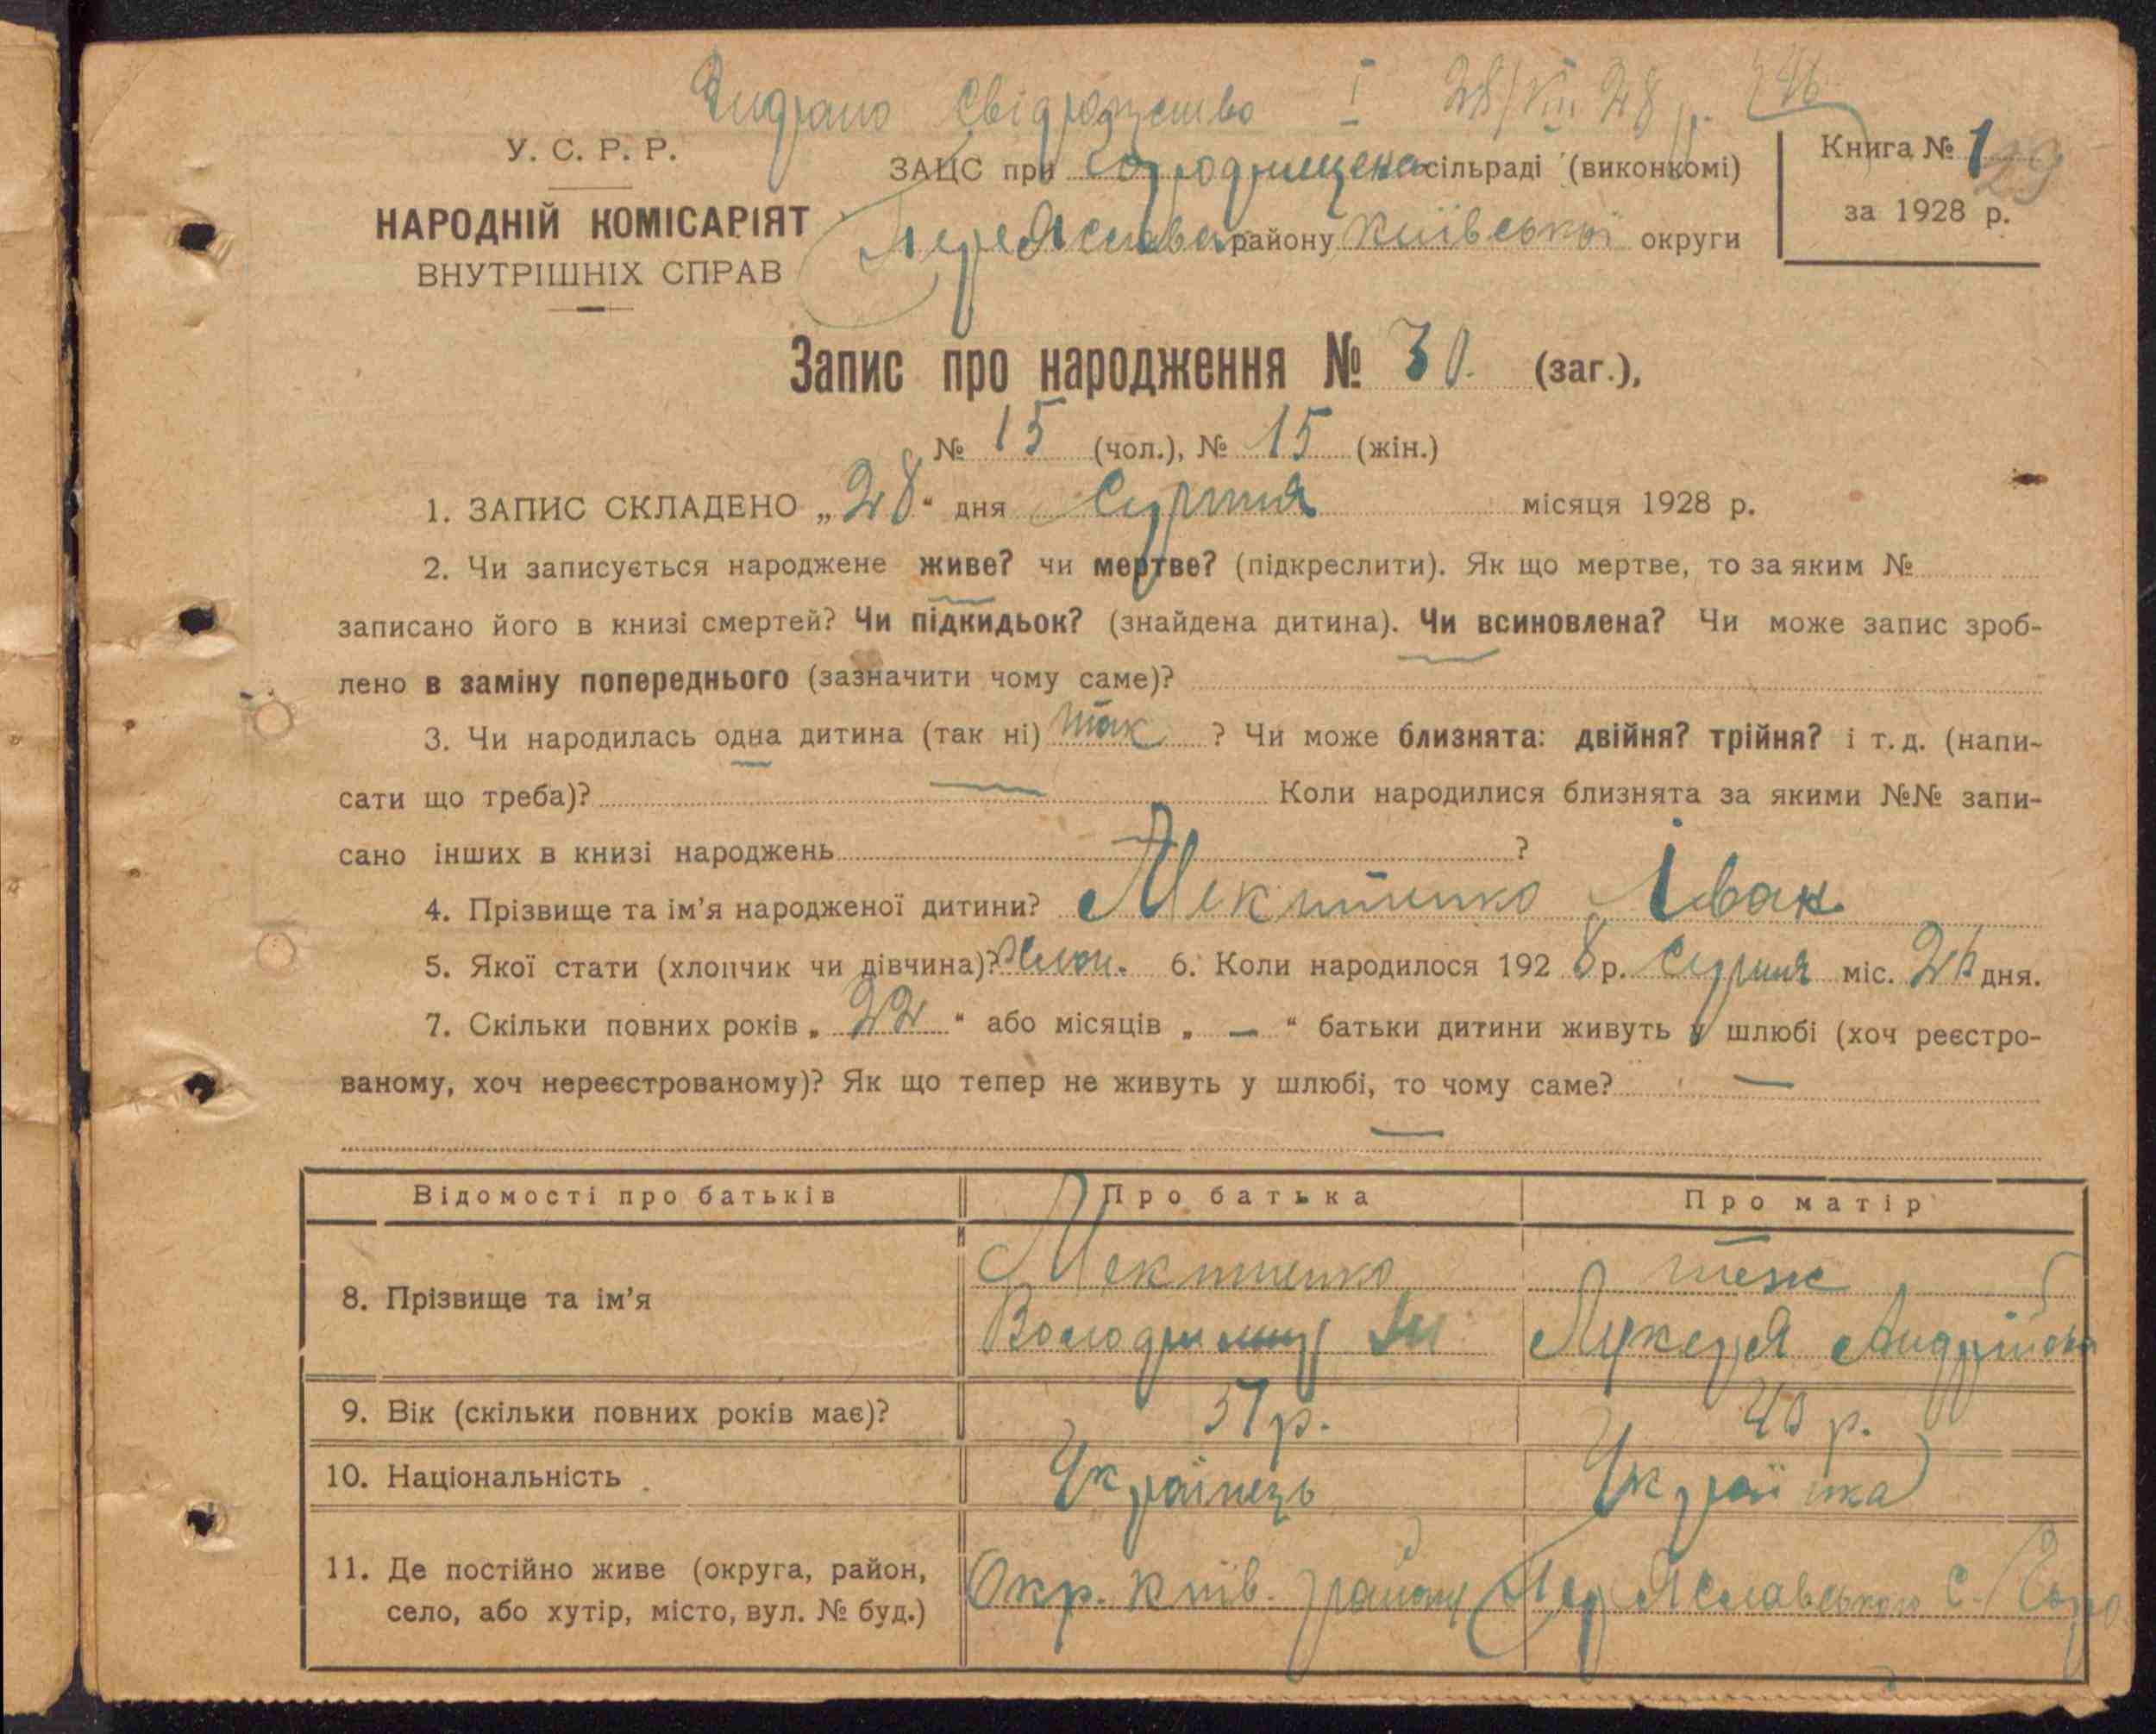 Видано Свідоцтво І 28/VIII 28 р.
У. С. Р. Р.
ЗАЦС при Городищен. сільраді (виконкомі)
Книга № 1 29
НАРОДНІЙ КОМІСАРІЯТ
Переяслав. району Київської округи
за 1928 р.
ВНУТРІШНІХ СПРАВ
Запис про народження № 30. (заг.),
№ 15 (чол.), № 15 (жін.)
1. ЗАПИС СКЛАДЕНО „28" дня Серпня місяця 1928 р.
2. Чи записується народжене живе? чи мертве? (підкреслити). Як що мертве, то за яким №
записано його в книзі смертей? Чи підкидьок? (знайдена дитина). Чи всиновлена? Чи може запис зроб-
лено в заміну попереднього (зазначити чому саме)?
3. Чи народилась одна дитина (так ні) так ? Чи може близнята: двійня? трійня? і т. д. (напи-
сати що треба)? — Коли народилися близнята за якими №№ запи-
сано інших в книзі народжень — ?
4. Прізвище та ім'я народженої дитини? Іван
5. Якої стати (хлопчик чи дівчина)? 6. Коли народилося 1928 р. Серпня міс. дня.
7. Скільки повних років „22" або місяців „—" батьки дитини живуть у шлюбі (хоч реєстро-
ваному, хоч нереєстрованому)? Як що тепер не живуть у шлюбі, то чому саме? —
—
Відомості про батьків Про батька Про матір
8. Прізвище та ім'я
теж
Володимир Лукеря Андріївна
9. Вік (скільки повних років має)? р. 40 р.
10. Національність Українець Українка
11. Де постійно живе (округа, район,
село, або хутір, місто, вул. № буд.)
Окр. Київ. району Переяславського С. Горо